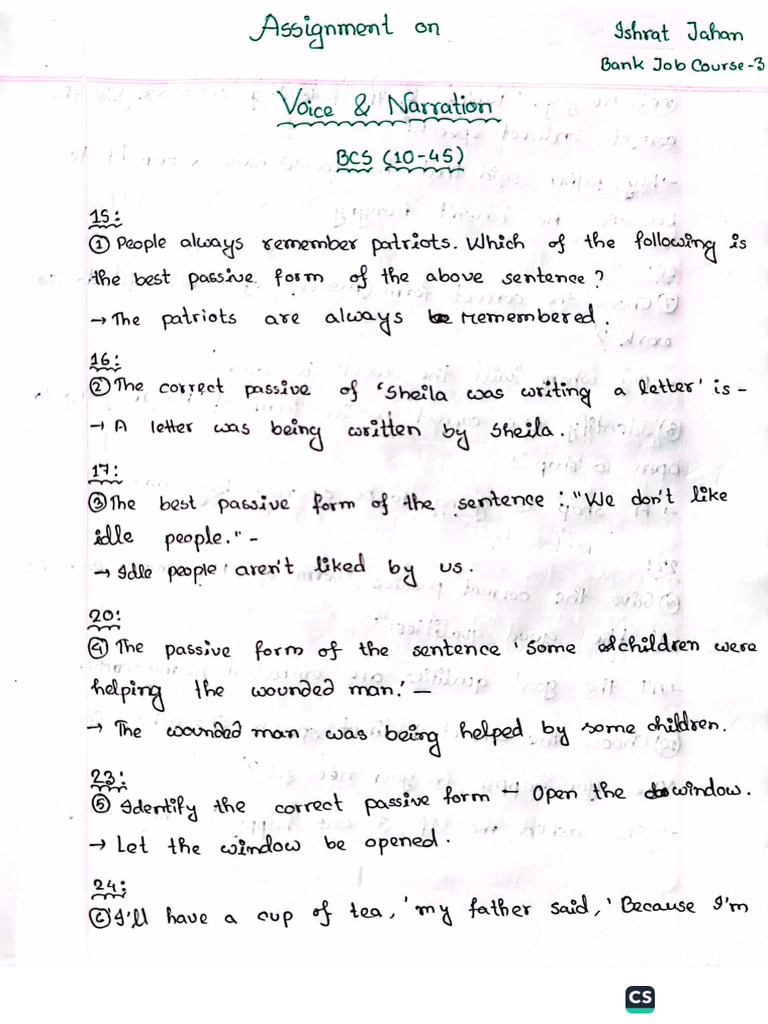 Assignment on
Ishrat Jahan
Bank Job Course-3
Voice & Narration
BCS (10-45)
15:
① People always remember patriots. Which of the following is
the best passive form of the above sentence?
→ The patriots are always remembered.
16:
② The correct passive of 'Sheila was writing a letter' is -
→ A letter was being written by Sheila.
17:
③ The best passive form of the sentence : "We don't like
idle people." -
→ Idle people aren't liked by us.
20:
④ The passive form of the sentence 'Some children were
helping the wounded man.' —
→ The wounded man was being helped by some children.
23:
⑤ Identify the correct passive form - Open the window.
→ Let the window be opened.
24:
⑥ I'll have a cup of tea, 'my father said, 'Because I'm
CS